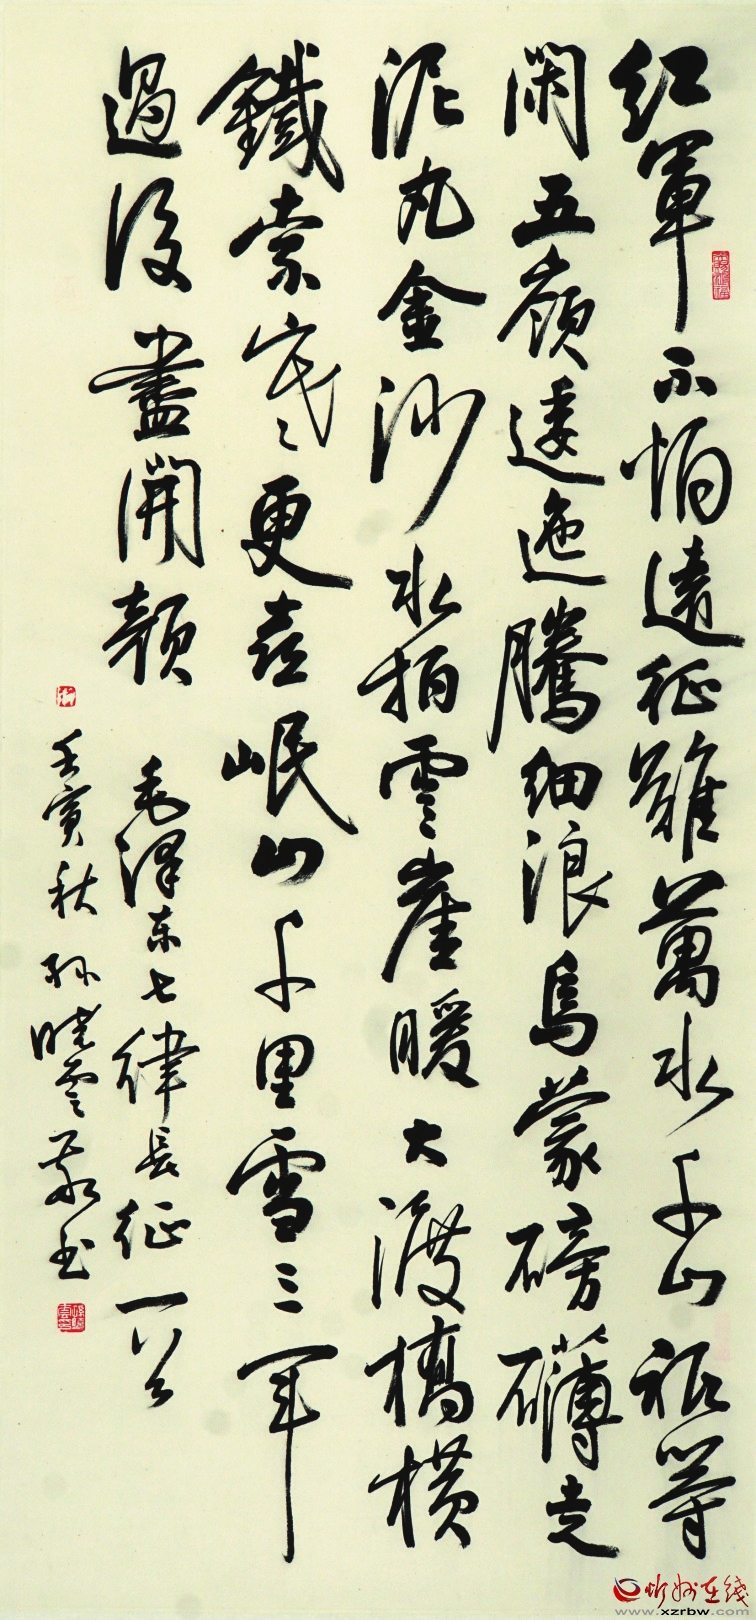 紅軍不怕遠征難萬水千山祇等
閑五嶺逶迤騰細浪烏蒙磅礴走
泥丸金沙水拍雲崖暖大渡橋橫
鐵索寒更喜岷山千里雪三軍
過後盡開顏
毛澤東七律長征一首
壬寅秋孫曉雲敬書
忻州在线
www.xzrbw.com